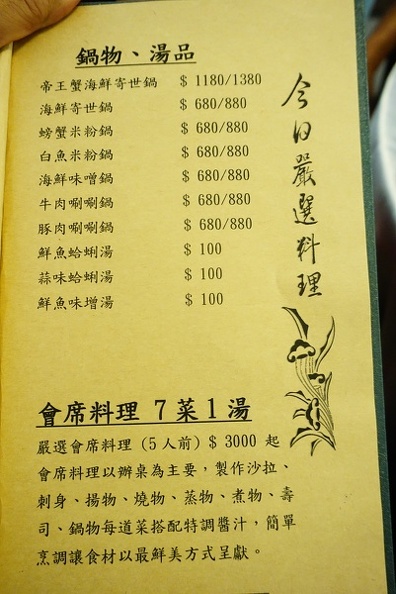 鍋物、湯品
帝王蟹海鮮寄世鍋 $ 1180/1380
海鮮寄世鍋 $ 680/880
螃蟹米粉鍋 $ 680/880
白魚米粉鍋 $ 680/880
海鮮味噌鍋 $ 680/880
牛肉唰唰鍋 $ 680/880
豚肉唰唰鍋 $ 680/880
鮮魚蛤蜊湯 $ 100
蒜味蛤蜊湯 $ 100
鮮魚味增湯 $ 100
今日嚴選料理
會席料理 7 菜 1 湯
嚴選會席料理 (5 人前) $ 3000 起
會席料理以辦桌為主要，製作沙拉、
刺身、揚物、燒物、蒸物、煮物、壽
司、鍋物每道菜搭配特調醬汁，簡單
烹調讓食材以最鮮美方式呈獻。